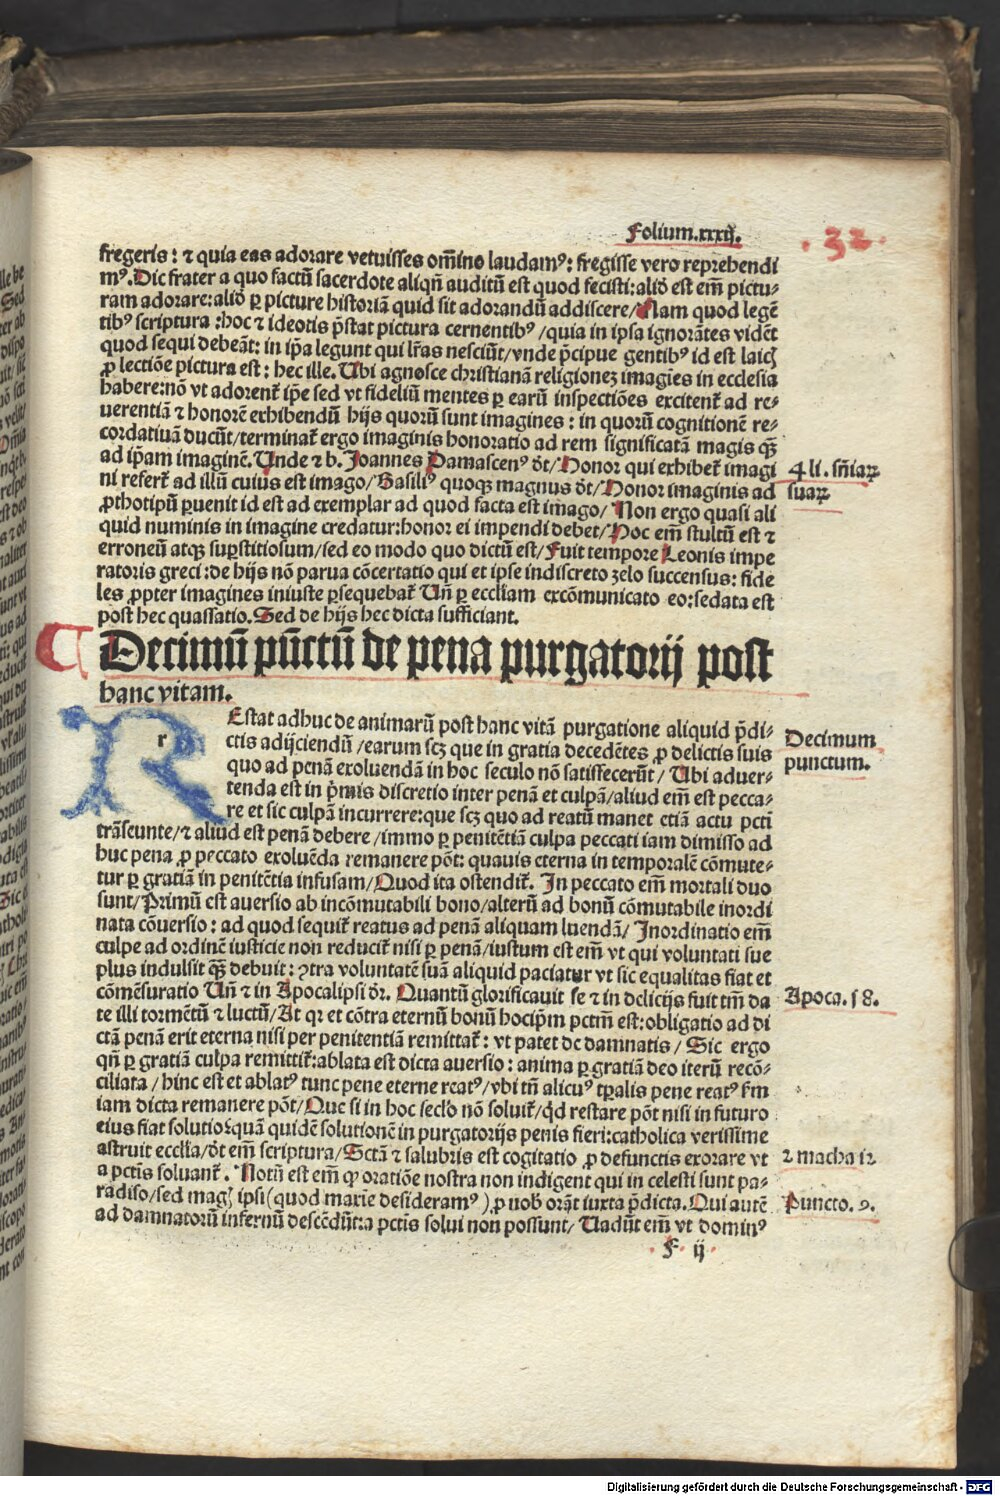 Folium.xxxij.
.32.
fregeris: ⁊ quia eas adorare vetuisses om̃ino laudamꝰ: fregisse vero reprehendi
mꝰ. Dic frater a quo factũ sacerdote aliqñ auditũ est quod fecisti: aliđ est em̃ pictu⸗
ram adorare: aliđ ꝑ picture historiã quid sit adorandũ addiscere/ Nam quod legẽ
tibꝰ scriptura: hoc ⁊ ideotis p̃stat pictura cernentibꝰ/ quia in ipsa ignorãtes vidẽt
quod sequi debeãt: in ip̃a legunt qui lr̃as nesciũt/ vnde p̃cipue gentibꝰ id est laicꝭ
ꝓ lectiõe pictura est: hec ille. Ubi agnosce christianã religioneꝫ imagies in ecclesia
habere: nõ vt adorent̃ ip̃e sed vt fideliũ mentes ꝑ earũ inspectiões excitent̃ ad re⸗
uerentiã ⁊ honorẽ exhibendũ hijs quorũ sunt imagines: in quorũ cognitionẽ re⸗
cordatiuã ducũt/ terminat̃ ergo imaginis honoratio ad rem significatã magis qꝫ̃
ad ip̃am imaginẽ. Unde ⁊ b. Joannes Damascenꝰ đt/ Honor qui exhibet̃ imagi
ni refert̃ ad illũ cuius est imago/ Basiliꝰ quoqꝫ magnus đt/ Honor imaginis ad
ꝓthotipũ ꝑuenit id est ad exemplar ad quod facta est imago/ Non ergo quasi ali
quid numinis in imagine credatur: honor ei impendi debet/ Hoc em̃ stultũ est ⁊
erroneũ atqꝫ suꝑstitiosum/ sed eo modo quo dictũ est/ Fuit tempore Leonis impe
ratoris greci: de hijs nõ parua cõcertatio qui et ipse indiscreto zelo succensus: fide
les ꝓpter imagines iniuste ꝑsequebat̃ Uñ ꝑ eccliam excõmunicato eo: sedata est
post hec quassatio. Sed de hijs hec dicta sufficiant.
4 li. sñiaꝝ
suaꝝ
¶ Decimũ pũctũ de pena purgatorij post
hanc vitam.
REstat adhuc de animarũ post hanc vitã purgatione aliquid p̃di⸗
ctis adijciendũ/ earum scꝫ que in gratia decedẽtes ꝓ delictis suis
quo ad penã exoluendã in hoc seculo nõ satisfecerũt/ Ubi aduer⸗
tenda est in p̃mis discretio inter penã et culpã/ aliud em̃ est pecca⸗
re et sic culpã incurrere: que scꝫ quo ad reatũ manet etiã actu pcti
trãseunte/ ⁊ aliud est penã debere/ immo ꝑ penitẽtiã culpa peccati iam dimisso ad
huc pena ꝓ peccato exoluẽda remanere põt: quauis eterna in temporalẽ cõmute⸗
tur ꝑ gratiã in penitẽtia infusam/ Quod ita ostendit̃. In peccato em̃ mortali duo
sunt/ Primũ est auersio ab incõmutabili bono/ alterũ ad bonũ cõmutabile inordi
nata cõuersio: ad quod sequit̃ reatus ad penã aliquam luendã/ Inordinatio em̃
culpe ad ordinẽ iusticie non reducit̃ nisi ꝑ penã/ iustum est em̃ vt qui voluntati sue
plus indulsit qꝫ̃ debuit: ꝯtra voluntatẽ suã aliquid paciatur vt sic equalitas fiat et
cõmẽsuratio Uñ ⁊ in Apocalipsi đr. Quantũ glorificauit se ⁊ in delicijs fuit tm̃ da
te illi tormẽtũ ⁊ luctũ/ At qꝛ et cõtra eternũ bonũ hocip̃m pctm̃ est: obligatio ad di
ctã penã erit eterna nisi per penitentiã remittat̃: vt patet de damnatis/ Sic ergo
qñ ꝑ gratiã culpa remittit̃: ablata est dicta auersio: anima ꝑ gratiã deo iterũ recõ⸗
ciliata/ hinc est et ablatꝰ tunc pene eterne reatꝰ/ vbi tñ alicuꝰ tꝑalis pene reatꝰ ẜm
iam dicta remanere põt/ Que si in hoc secl̃o nõ soluit̃/ qđ restare põt nisi in futuro
eius fiat solutio: quã quidẽ solutionẽ in purgatorijs penis fieri: catholica verissime
astruit eccl̃ia/ đt em̃ scriptura/ Sctã ⁊ salubris est cogitatio ꝓ defunctis exorare vt
a pctis soluant̃. Notũ est em̃ ꝙ oratiõe nostra non indigent qui in celesti sunt pa⸗
radiso/ sed magꝭ ipsi (quod marie desideramꝰ) ꝓ nob̃ orãt iuxta p̃dicta. Qui autẽ
ad damnatorũ infernũ descẽdũt: a pctis solui non possunt/ Uadũt em̃ vt dominꝰ
Decimum
punctum.
Apoca. 18.
2 macha 12
Puncto. 9.
F ij
Digitalisierung gefördert durch die Deutsche Forschungsgemeinschaft - DFG